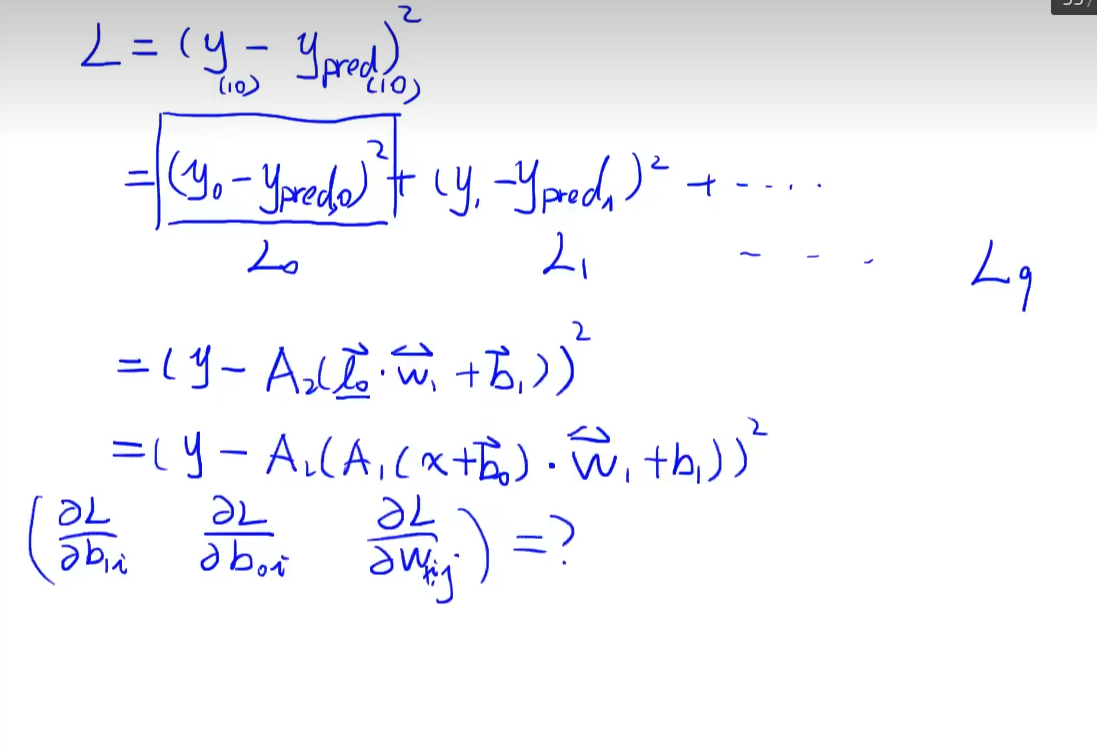 L = (y - y_pred)²
(10) (10)
= (y₀ - y_pred,0)² + (y₁ - y_pred,1)² + - - · · ·
L₀ L₁ - - - L₉
= (y - A₂(l⃗₀ · w⃡₁ + b⃗₁))²
= (y - A₂(A₁(x + b⃗₀) · w⃡₁ + b₁))²
(∂L/∂b₁ᵢ ∂L/∂b₀ᵢ ∂L/∂w₁ᵢⱼ) = ?